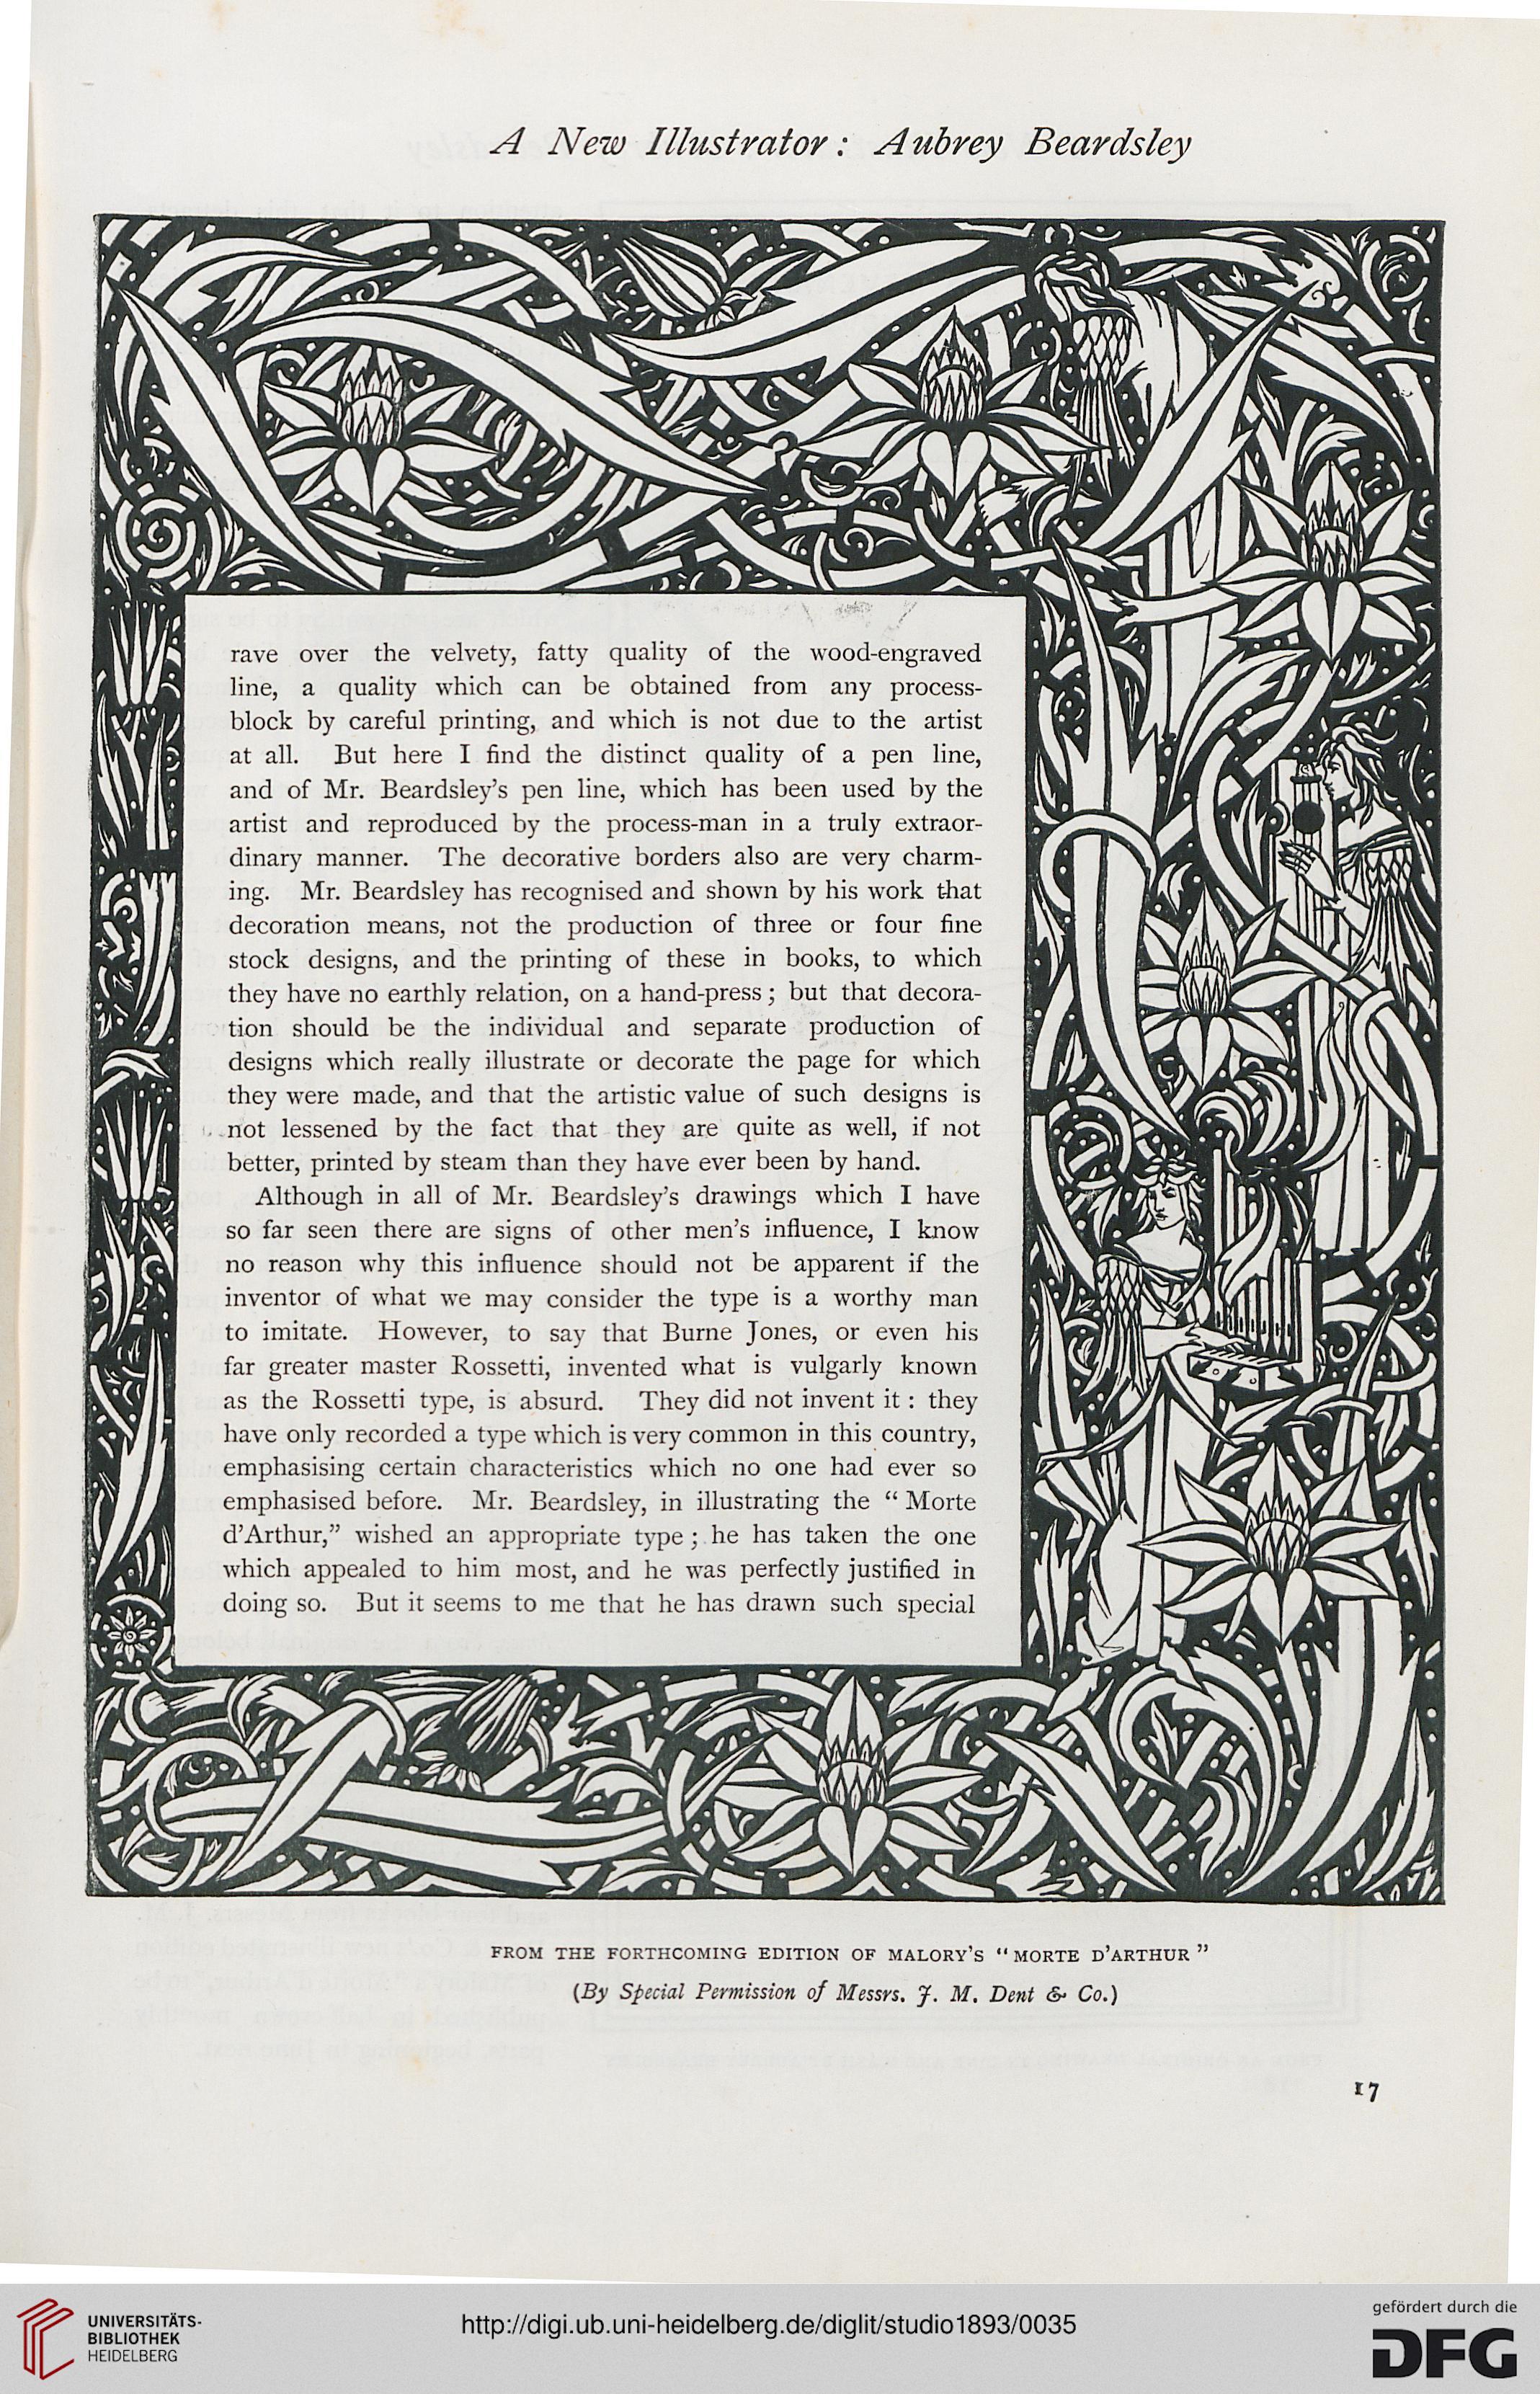 A New Illustrator: Aubrey Beardsley
rave over the velvety, fatty quality of the wood-engraved
line, a quality which can be obtained from any process-
block by careful printing, and which is not due to the artist
at all. But here I find the distinct quality of a pen line,
and of Mr. Beardsley's pen line, which has been used by the
artist and reproduced by the process-man in a truly extraor-
dinary manner. The decorative borders also are very charm-
ing. Mr. Beardsley has recognised and shown by his work that
decoration means, not the production of three or four fine
stock designs, and the printing of these in books, to which
they have no earthly relation, on a hand-press; but that decora-
tion should be the individual and separate production of
designs which really illustrate or decorate the page for which
they were made, and that the artistic value of such designs is
not lessened by the fact that they are quite as well, if not
better, printed by steam than they have ever been by hand.
Although in all of Mr. Beardsley's drawings which I have
so far seen there are signs of other men's influence, I know
no reason why this influence should not be apparent if the
inventor of what we may consider the type is a worthy man
to imitate. However, to say that Burne Jones, or even his
far greater master Rossetti, invented what is vulgarly known
as the Rossetti type, is absurd. They did not invent it: they
have only recorded a type which is very common in this country,
emphasising certain characteristics which no one had ever so
emphasised before. Mr. Beardsley, in illustrating the "Morte
d'Arthur," wished an appropriate type; he has taken the one
which appealed to him most, and he was perfectly justified in
doing so. But it seems to me that he has drawn such special
FROM THE FORTHCOMING EDITION OF MALORY'S "MORTE D'ARTHUR"
(By Special Permission of Messrs. J. M. Dent & Co.)
17
UNIVERSITÄTS-
BIBLIOTHEK
HEIDELBERG
http://digi.ub.uni-heidelberg.de/diglit/studio1893/0035
gefördert durch die
DFG